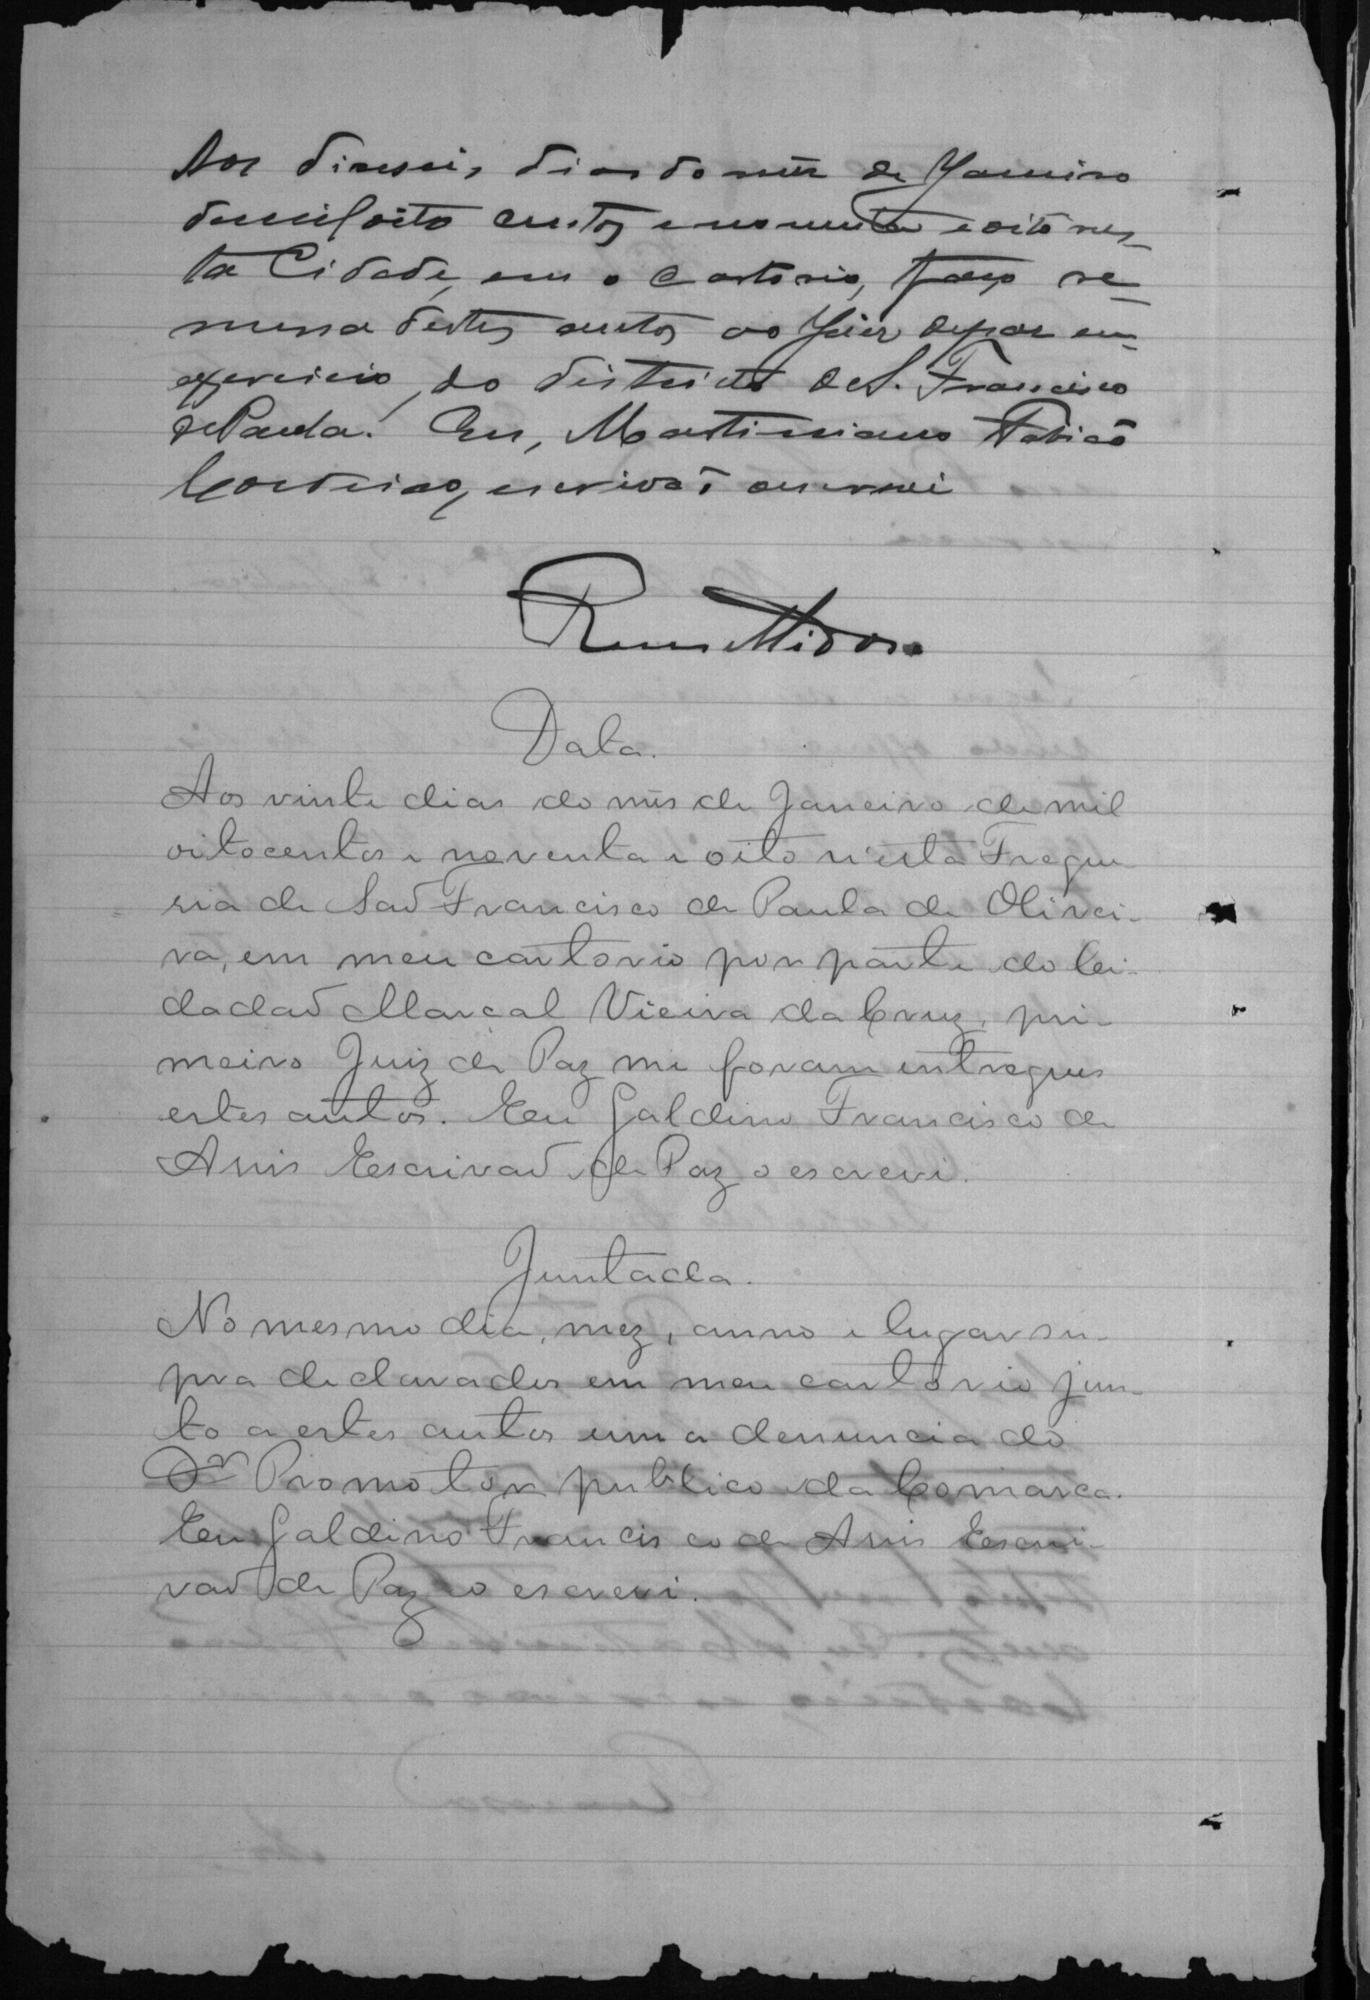 Aos diseseis dias do mêz de Janeiro
de mil oito centos e noventa e oito nes-
ta Cidade, em o Cartorio, faço re-
messa destes autos ao Juiz de paz em
exercicio, do districto de S. Francisco
de Paula. Eu, Martiniano
Cordeiro, escrivaõ o escrevi
Remettidos
Data.
Aos vinte dias do mês de Janeiro de mil
oitocentos e noventa e oito n'esta Fregue-
sia de Saõ Francisco de Paula de Olivei-
ra, em meu cartorio por parte do Ci-
dadaõ Marcal Vieira da Cruz, pri-
meiro Juiz de Paz me foram entregues
estes autos. Eu Galdino Francisco de
Assis Escrivaõ de Paz o escrevi.
Juntada.
No mesmo dia, mez, anno e lugar su-
pra declarados em meu cartorio jun-
to a estes autos uma denuncia do
Dr Promotor publico da Comarca.
Eu Galdino Francisco de Assis Escri-
vaõ de Paz o escrevi.